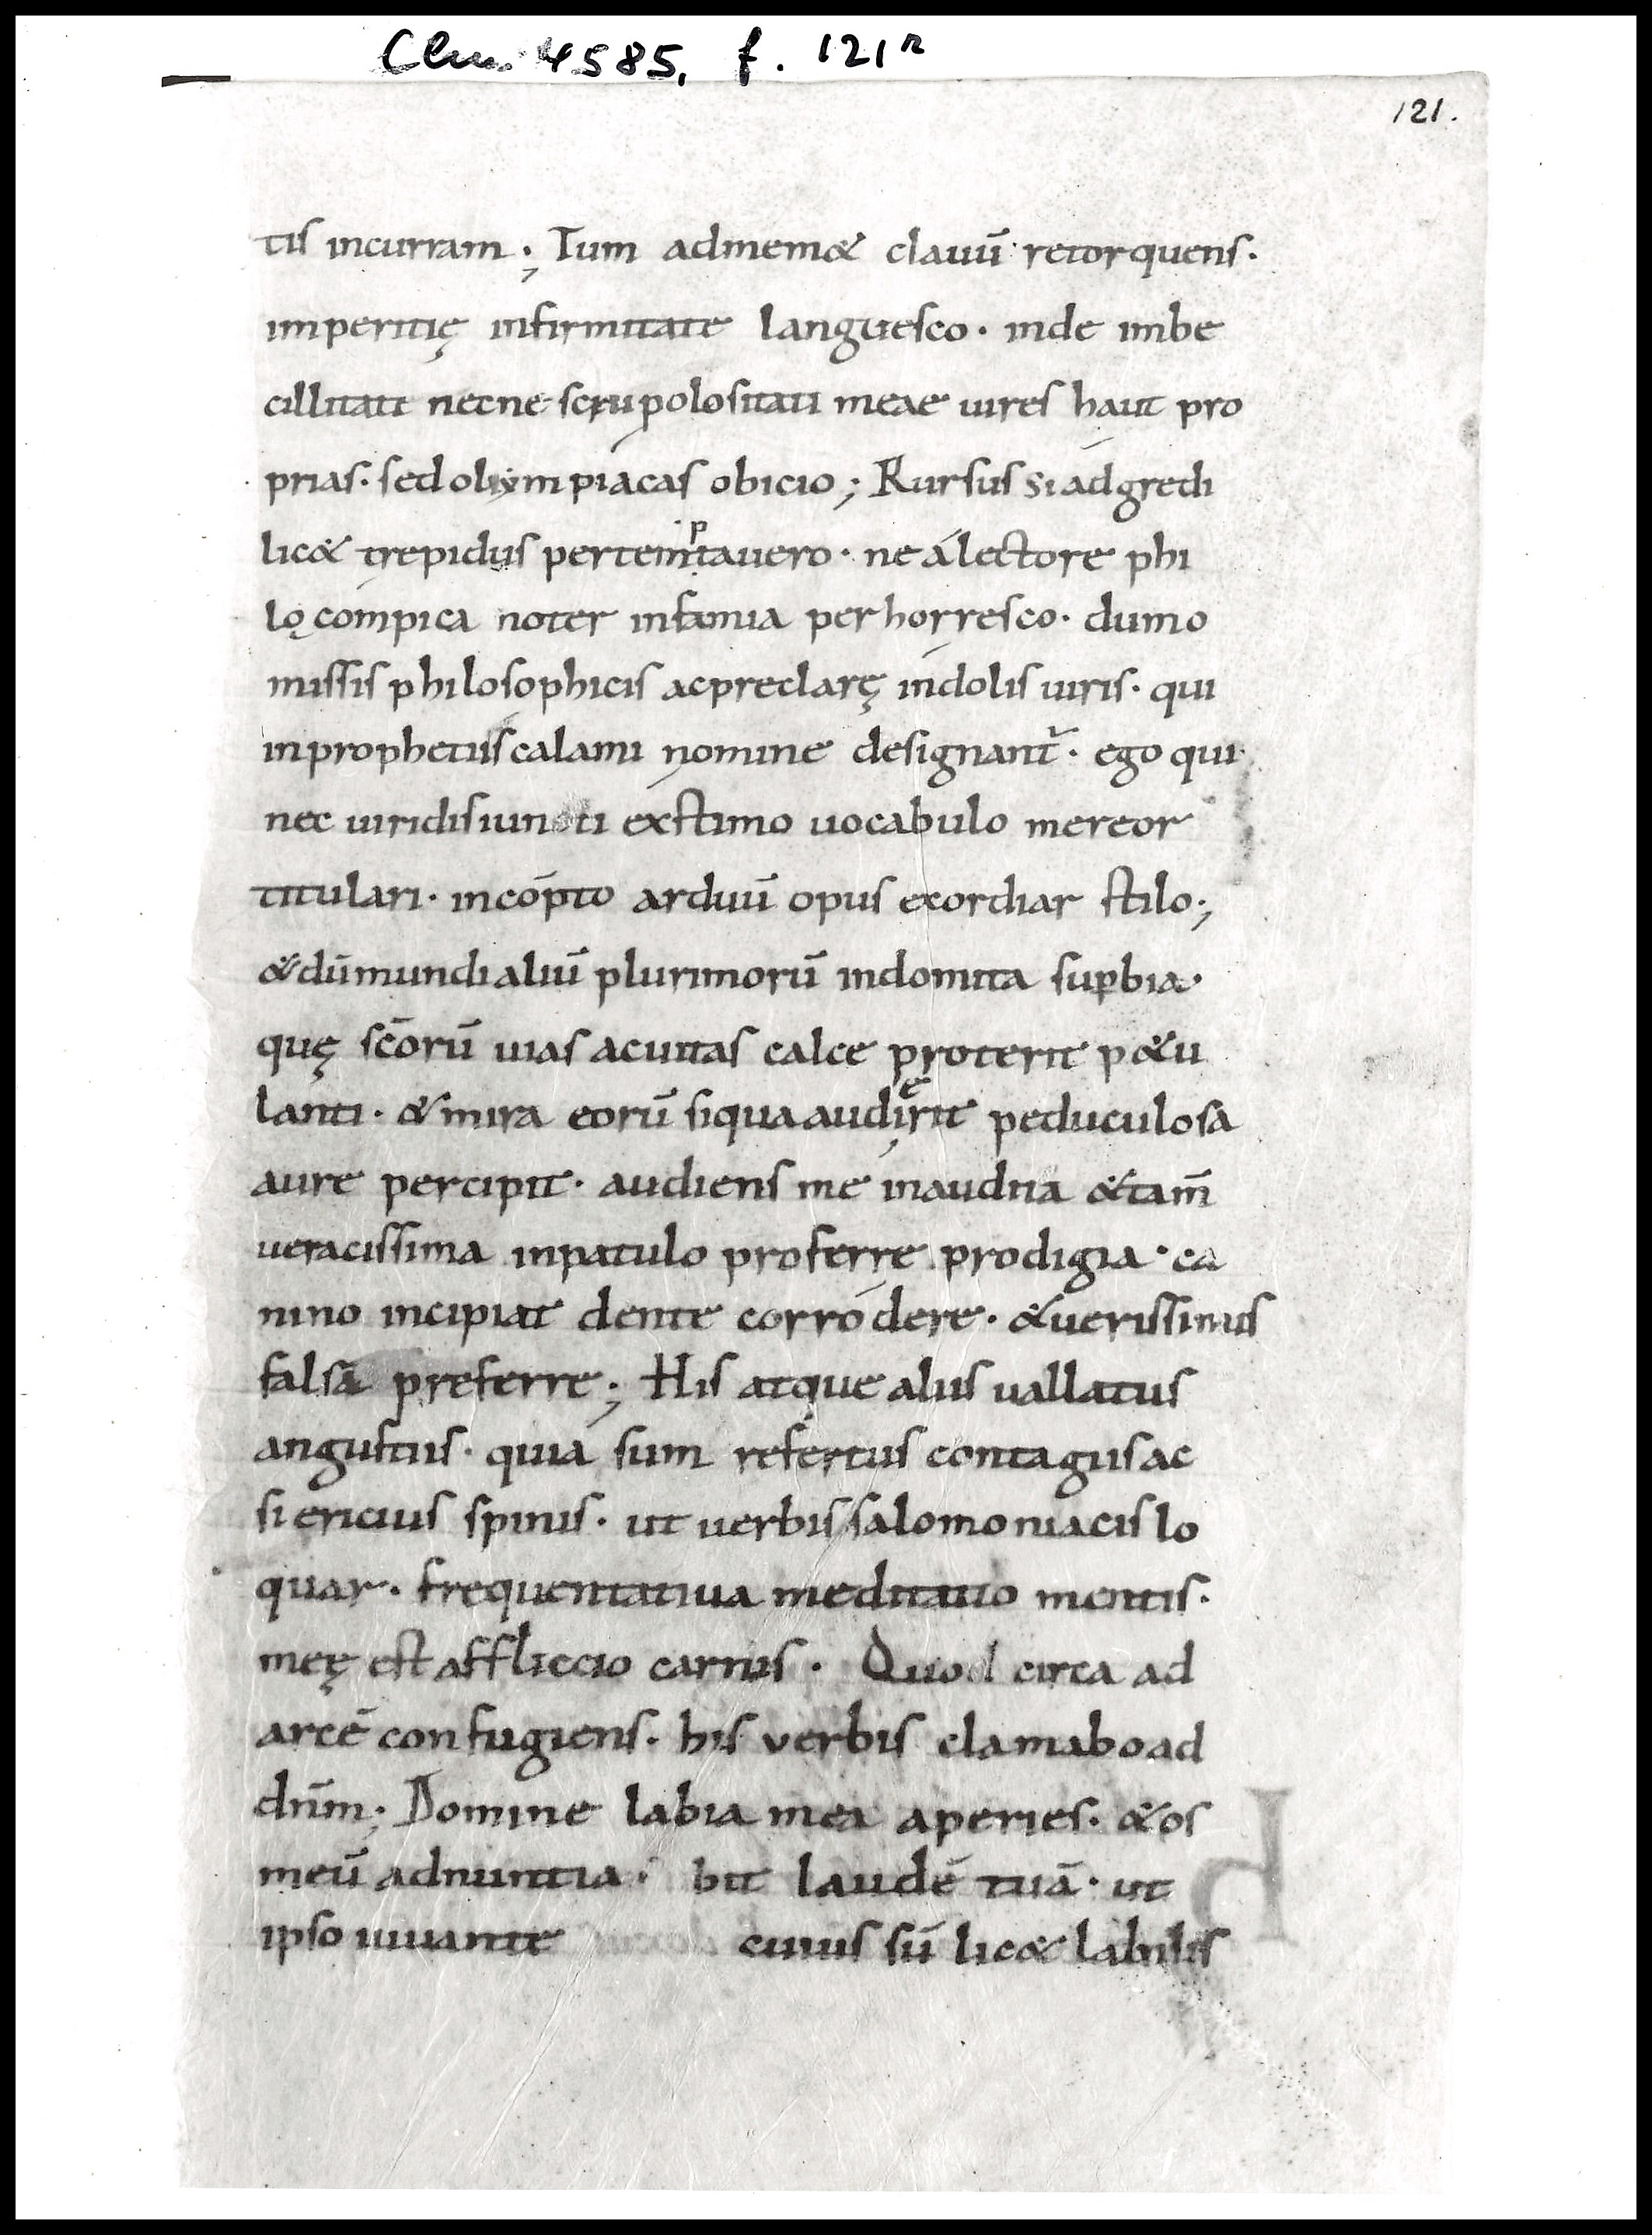 Clm. 4585, f. 121r
121.
tis incurram; Tum admem& clauū retorquens.
imperitię infirmitate languesco. inde imbe
cillitati necne scrupolositati meae uires haut pro
prias. sed olympiacas obicio; Rursus si adgredi
lic& trepidus pertemptauero. ne álectore phi
locompica noter infamia perhorresco. dumo
missis philosophicis acpreclarę indolis uiris. qui
inprophetiis calami nomine designant̄. ego qui
nec uiridisiun ci exstimo uocabulo mereor
titulari. incōpto arduū opus exordiar stilo;
&dū mundialiū plurimorū indomita sup̄bia.
quę sc̄orū uias acuitas calce proterit p&u
lanti. &mira eorū siqua audierit peduculosa
aure percipit. audiens me inaudita &tam̄
ueracissima inpatulo proferre prodigia. ca
nino incipiat dente corródere. &uerissimis
falsa preferre; His atque aliis uallatus
angustiis. quia sum refertus contagiis ac
si ericius spinis. ut uerbis salomoniacis lo
quar. frequentatiua meditatio mentis.
meę est affliccio carnis. Quod circa ad
arcē confugiens. his verbis clamabo ad
dn̄m; Domine labia mea aperies. &os
meū adnuntia bit laudē tuā. ut
ipso iuuante cuius sū lic& labilis